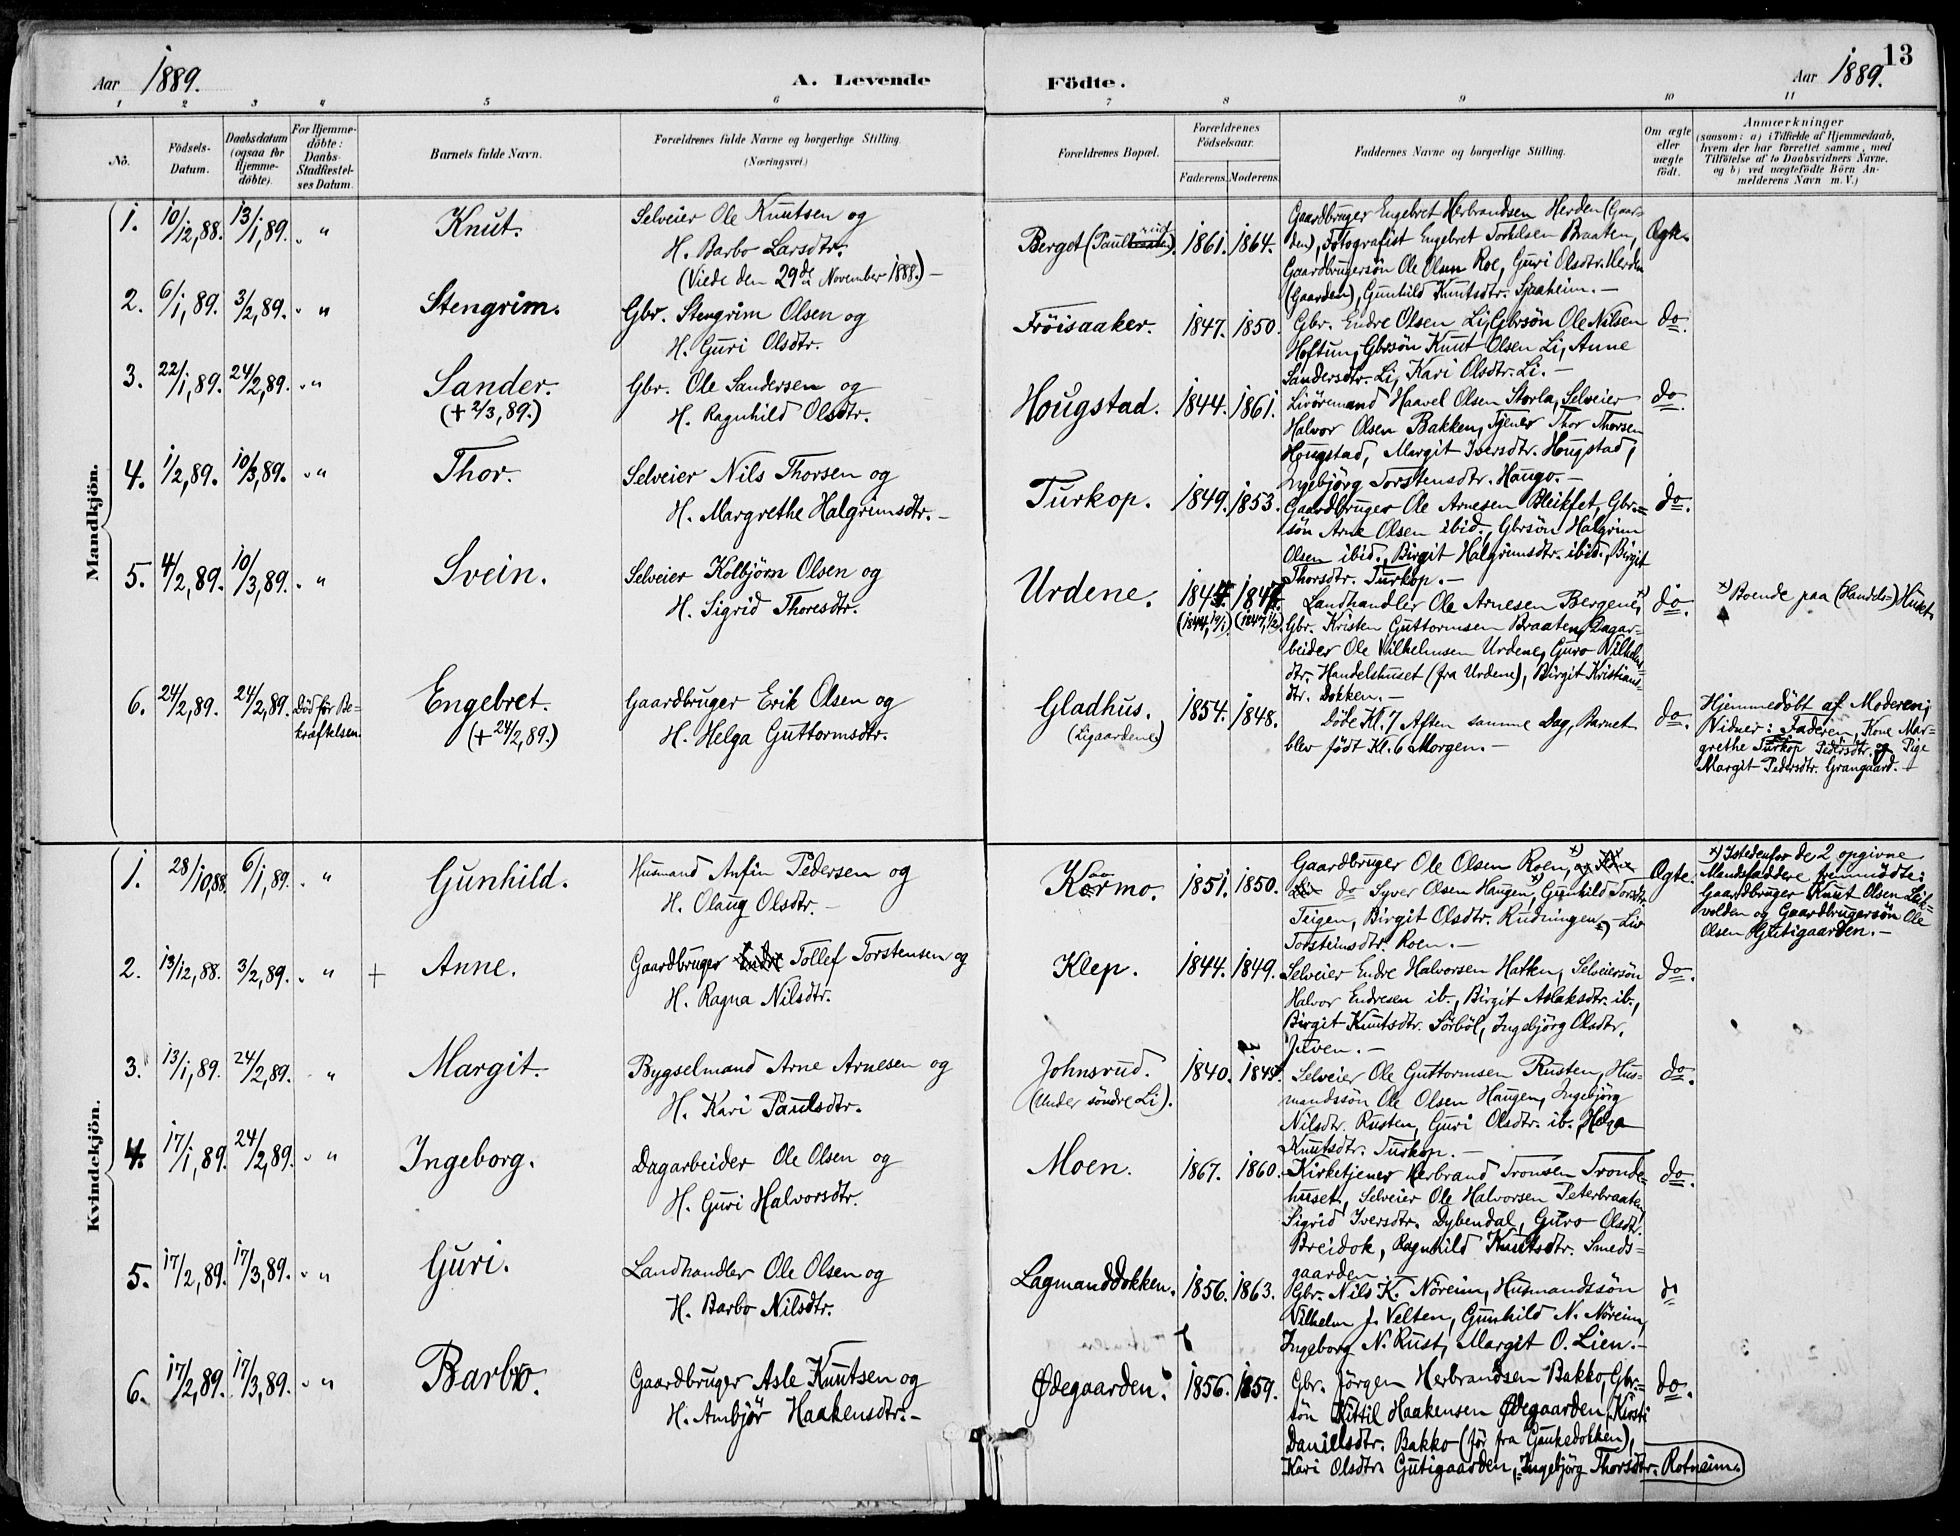 13
Aar 1889. A. Levende Födte. Aar 1889.
1 2 3 4 5 6 7 8 9 10 11
No.
Födsels-
Datum.
Daabsdatum
(ogsaa før
Hjemme-
döbte).
For Hjemme-
döbte:
Daabs-
Stadfæstel-
ses Datum.
Barnets fulde Navn.
Forældrenes fulde Navne og borgerlige Stilling.
(Næringsvei.)
Forældrenes Bopæl.
Forældrenes
Födselsaar.
Faderens. Moderens.
Faddernes Navne og borgerlige Stilling.
Om ægte
eller
uægte
födt.
Anmærkninger
(saasom: a) i Tilfælde af Hjemmedaab,
hvem der har forrettet samme, med
Tilföielse af to Daabsvidners Navne,
og b) ved uægtefödte Börn An-
melderens Navn m. V.)
Mandkjön.
1. 10/12,88. 13/1,89. " Knut.
Selveier Ole Knutsen og
H. Barbo Larsdtr.
(Viede den 29de November 1888.) —
Berget (Paulsrud). 1861. 1864.
Gaardbruger Engebret Herbrandsen Herden (Gaar-
den), Fotografist Engebret Torkilsen Braaten,
Gaardbrugersön Ole Olsen Roe, Guri Olsdtr. Herden
(Gaarden), Gunhild Knutsdtr. Sjaaheim. —
Ægte.
2. 6/1,89. 3/2,89. " Stengrim.
Gbr. Stengrim Olsen og
H. Guri Olsdtr.
Fröisaaker. 1847. 1850.
Gbr. Endre Olsen Li, Gbrsön Ole Nilsen
Hoftun, Gbrsön Knut Olsen Li, Anne
Sandersdtr. Li, Kari Olsdtr. Li. —
do.
3. 22/1,89. 24/2,89. " Sander.
(+ 2/3,89.)
Gbr. Ole Sandersen og
H. Ragnhild Olsdtr.
Hougstad. 1844. 1861.
Livöremand Haavel Olsen Storla, Selveier
Halvor Olsen Bakken, Tjener Thor Thorsen
Hougstad, Margit Iversdtr. Hougstad,
Ingebjörg Torstensdtr. Haugo. —
do.
4. 1/2,89. 10/3,89. " Thor.
Selveier Nils Thorsen og
H. Margrethe Halgrimsdtr. —
Turkop. 1849. 1853.
Gaardbruger Ole Arnesen Bleikfet, Gbr.=
sön Arne Olsen ibid., Gbrsön Halgrim
Olsen ibid., Birgit Halgrimsdtr. ibid., Birgit
Thorsdtr. Turkop. —
do.
5. 4/2,89. 10/3,89. " Svein.
Selveier Kolbjörn Olsen og
H. Sigrid Thoresdtr.
Urdene. 1844. 1847.
Landhandler Ole Arnesen Bergene, x)
Gbr. Kristen Guttormsen Braaten, Dagar=
beider Ole Vilhelmsen Urdene, Guro Vilhelms-
dtr. Handelshuset (fra Urdene), Birgit Kristians-
dtr. Dokken. —
do.
x) Boende paa (Handels=) Huset.
6. 24/2,89. 24/2,89. Död før Be=
kræftelsen. Engebret.
(+ 24/2,89.)
Gaardbruger Erik Olsen og
H. Helga Guttormsdtr.
Gladhus.
(Ligaardene)
1854. 1848.
Døde Kl. 7 Aften samme Dag, Barnet
blev født Kl. 6 Morgen. —
do.
Hjemmedöbt af Moderen;
Vidner: Faderen, Kone Mar-
grethe Turkop Pedersdtr. og Pige
Margit Pedersdtr. Grangaard. —
Kvindekjön.
1. 28/10,88. 6/1,89. " Gunhild.
Husmand Anfin Pedersen og
H. Olaug Olsdtr. —
Kaarmo. 1851. 1850.
Gaardbruger Ole Olsen Roen, x)
do Syver Olsen Haugen, x) Gunhild Torstdtr.
Teigen, Birgit Olsdtr. Rudningen, Liv
Torsteinsdtr. Roen. —
Ægte.
x) Istedenfor de 2 opgivne
Mandsfaddere fremmödte:
Gaardbruger Knut Olsen Leik-
volden og Gaardbrugersön Ole
Olsen Gutigaarden. —
2. 13/12,88. 3/2,89. " + Anne.
Gaardbruger Endre Tollef Torstensen og
H. Ragna Nilsdtr.
Klep. 1844. 1849.
Selveier Endre Halvorsen Hatten, Selveiersön
Halvor Endresen ib., Birgit Aslaksdtr. ib.,
Birgit Knutsdtr. Sörböl, Ingebjörg Olsdtr.
Juven. —
do.
3. 13/1,89. 24/2,89. " Margit.
Bygselmand Arne Arnesen og
H. Kari Paulsdtr.
Johnsrud.
(Under söndre Li).
1840.
Selveier Ole Guttormsen Rusten, Hus=
mandssön Ole Olsen Haugen, Ingebjörg
Nilsdtr. Rusten, Guri Olsdtr. ib., Helga
Knutsdtr. Turkop. —
do.
4. 17/1,89. 24/2,89. " Ingeborg.
Dagarbeider Ole Olsen og
H. Guri Halvorsdtr.
Moen. 1867. 1860.
Kirketjener Herbrand Tronsen Tronde=
huset, Selveier Ole Halvorsen Peterbraaten,
Sigrid Iversdtr. Dybendal, Guro Olsdtr.
Breidok, Ragnhild Knutsdtr. Smeds=
gaarden. —
do.
5. 17/2,89. 17/3,89. " Guri.
Landhandler Ole Olsen og
H. Barbo Nilsdtr.
Lagmanddokken. 1856. 1863.
Gbr. Nils K. Nöreim, Husmandssön
Vilhelm J. Velten, Gunhild N. Nöreim,
Ingeborg N. Rust, Margit O. Lien. —
do
6. 17/2,89. 17/3,89. " Barbro.
Gaardbruger Asle Knutsen og
H. Ambjör Haakensdtr. —
Ødegaarden. 1856. 1859.
Gbr. Jörgen Herbrandsen Bakko, Gbr.=
sön Kittil Haakensen Ødegaarden, Kirsti
Danielsdtr. Bakko (för fra Gaukedokken),
Kari Olsdtr. Gutigaarden, Ingebjörg Thorsdtr. Rotneim.
do.